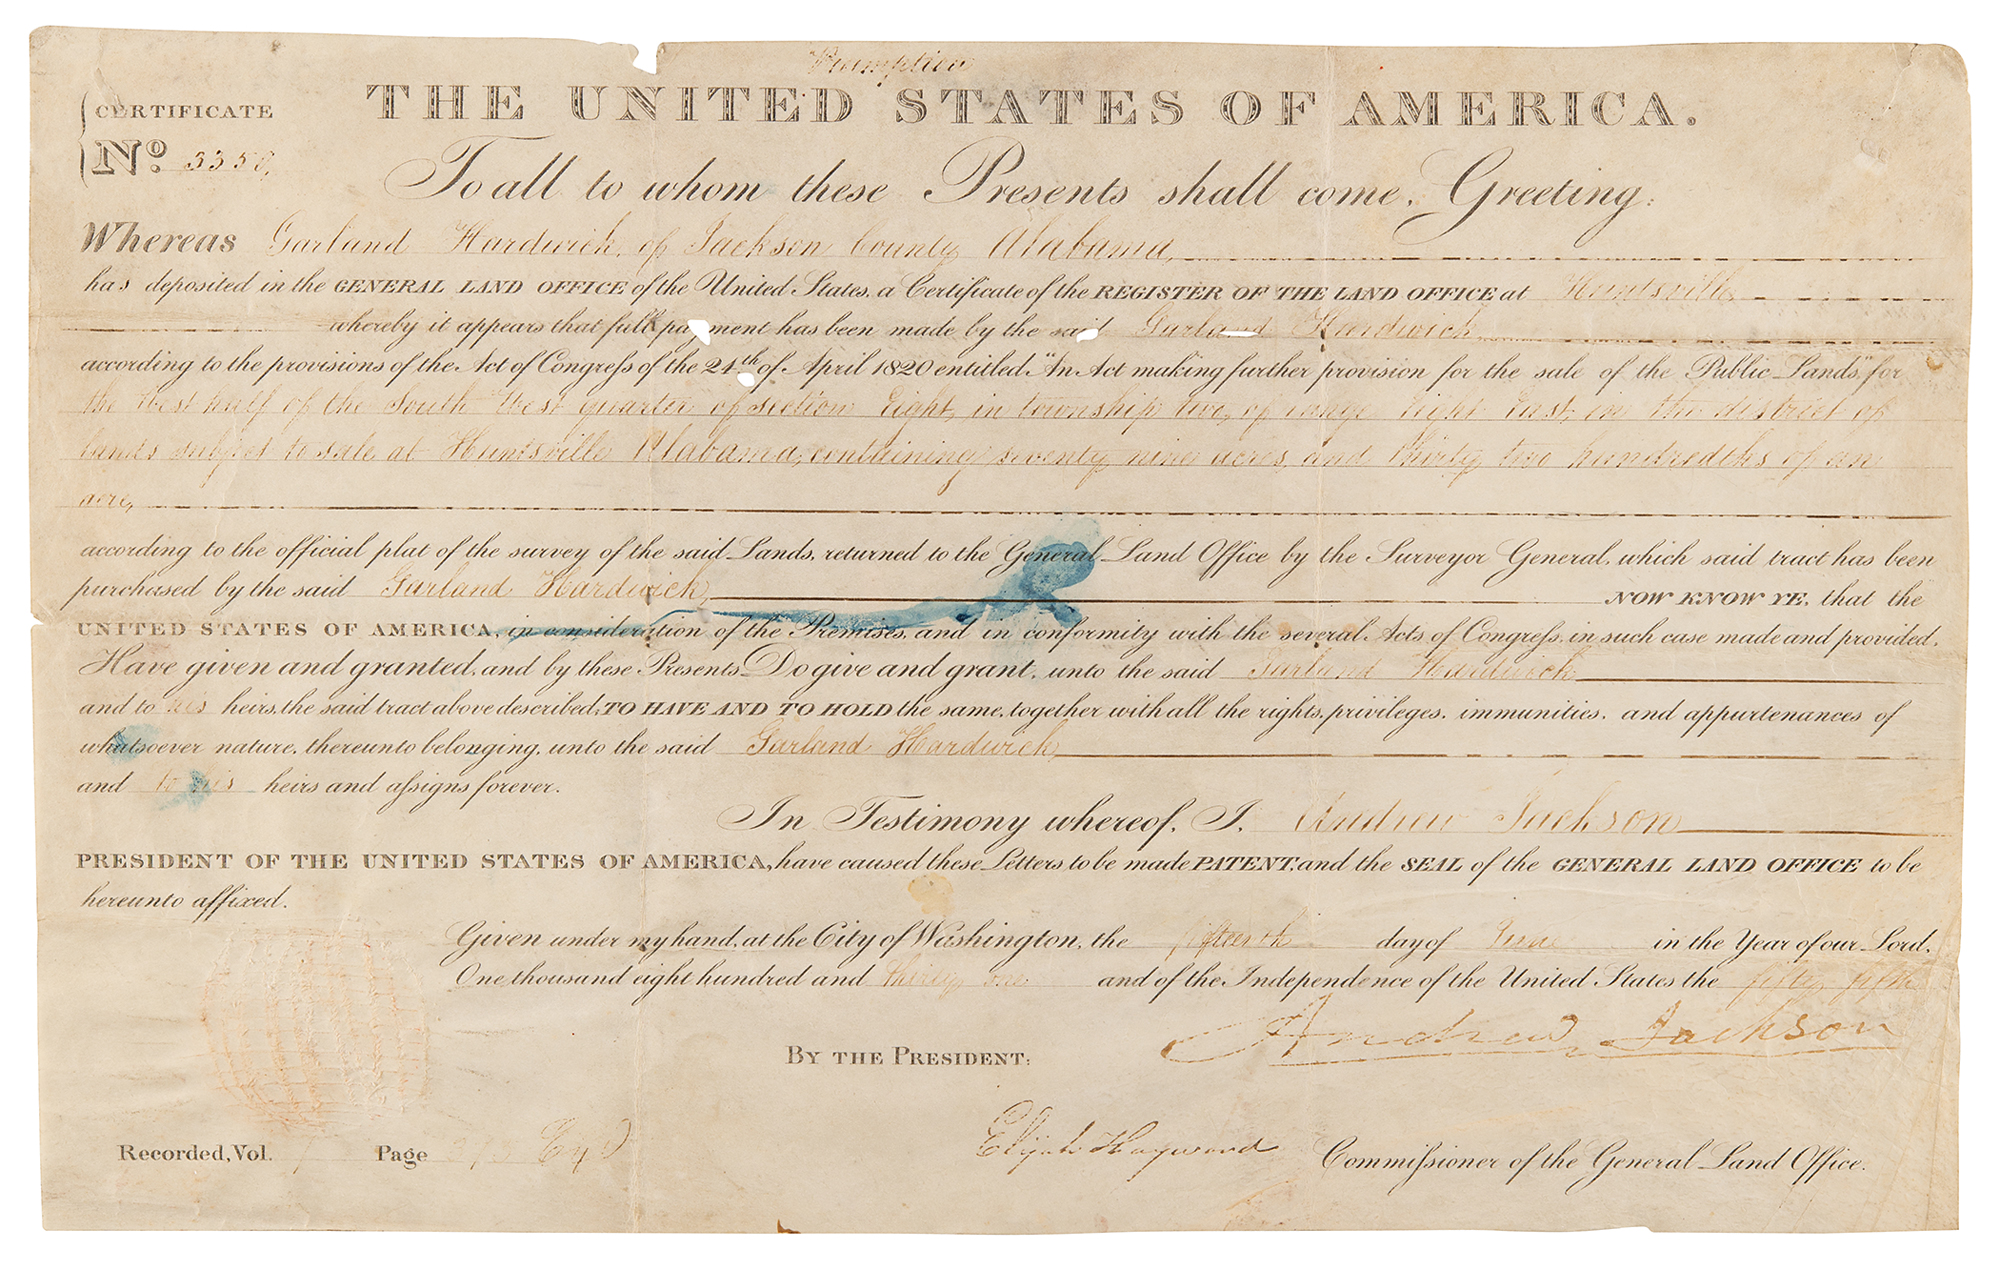 Preemption
CERTIFICATE
No. 3350,
THE UNITED STATES OF AMERICA.
To all to whom these Presents shall come, Greeting:
Whereas Garland Hardwick, of Jackson County, Alabama,
has deposited in the GENERAL LAND OFFICE of the United States, a Certificate of the REGISTER OF THE LAND OFFICE at Huntsville
whereby it appears that full payment has been made by the said Garland Hardwick
according to the provisions of the Act of Congress of the 24th of April 1820 entitled "An Act making further provision for the sale of the Public Lands," for
the West half of the South West quarter of section Eight, in township two, of range Eight East, in the district of
lands subject to sale at Huntsville Alabama, containing seventy nine acres, and thirty two hundredths of an
acre,
according to the official plat of the survey of the said Lands, returned to the General Land Office by the Surveyor General, which said tract has been
purchased by the said Garland Hardwick, NOW KNOW YE, that the
UNITED STATES OF AMERICA, in consideration of the Premises, and in conformity with the several Acts of Congress, in such case made and provided,
Have given and granted, and by these Presents Do give and grant, unto the said Garland Hardwick
and to his heirs, the said tract above described, TO HAVE AND TO HOLD the same, together with all the rights, privileges, immunities, and appurtenances of
whatsoever nature, thereunto belonging, unto the said Garland Hardwick
and to his heirs and assigns forever.
In Testimony whereof, I, Andrew Jackson
PRESIDENT OF THE UNITED STATES OF AMERICA, have caused these Letters to be made PATENT, and the SEAL of the GENERAL LAND OFFICE to be
hereunto affixed.
Given under my hand, at the City of Washington, the fifteenth day of June in the Year of our Lord,
One thousand eight hundred and thirty one and of the Independence of the United States the fifty fifth
Andrew Jackson
BY THE PRESIDENT:
Elijah Hayward Commissioner of the General Land Office.
Recorded, Vol. Page